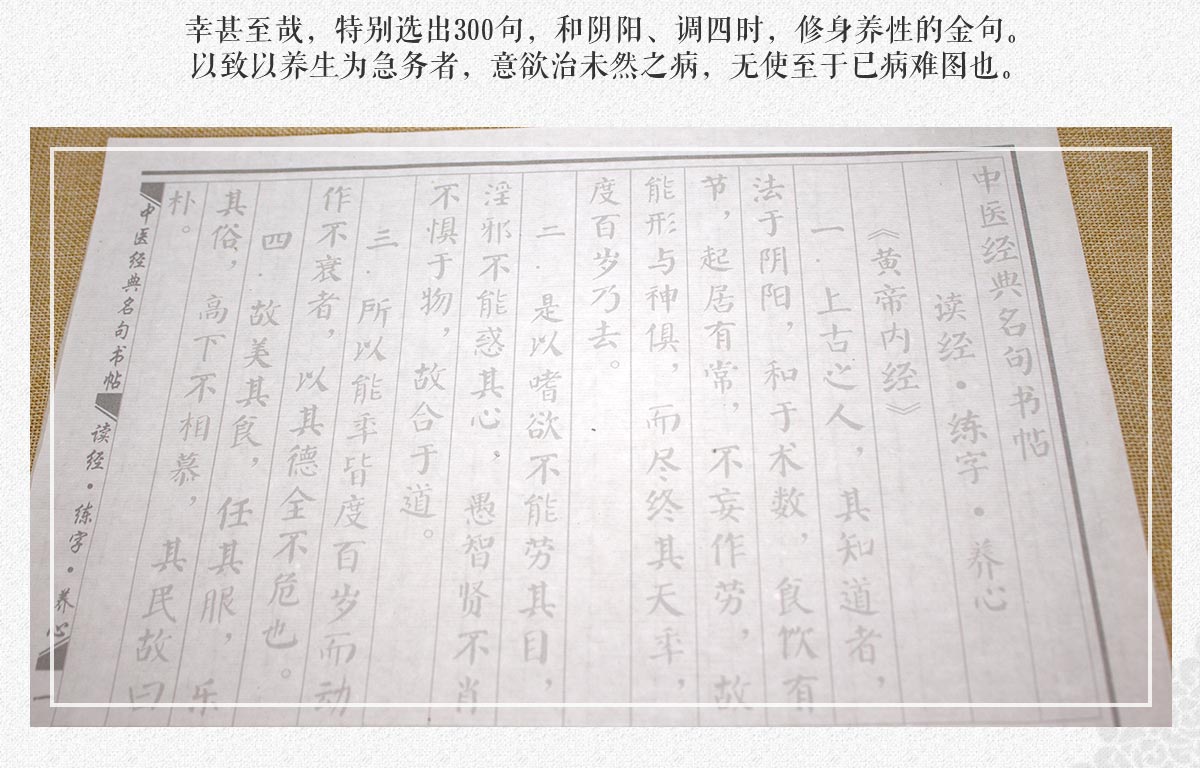 幸甚至哉，特别选出300句，和阴阳、调四时，修身养性的金句。
以致以养生为急务者，意欲治未然之病，无使至于已病难图也。
中医经典名句书帖
读经·练字·养心
《黄帝内经》
一．上古之人，其知道者，
法于阴阳，和于术数，食饮有
节，起居有常，不妄作劳，故
能形与神俱，而尽终其天年，
度百岁乃去。
二．是以嗜欲不能劳其目，
淫邪不能惑其心，愚智贤不肖
不惧于物，故合于道。
三．所以能年皆度百岁而动
作不衰者，以其德全不危也。
四．故美其食，任其服，乐
其俗，高下不相慕，其民故曰
朴。
中医经典名句书帖
读经·练字·养心
一